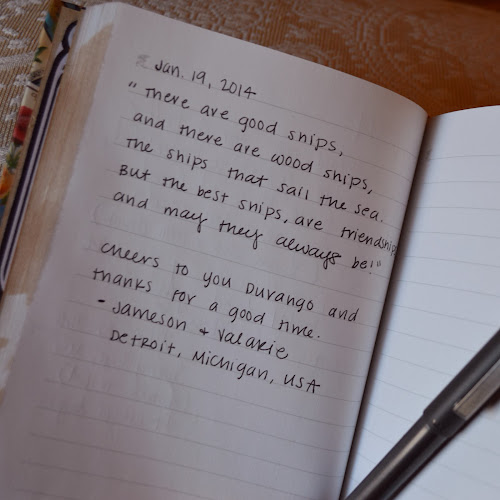 Jan. 19, 2014
"There are good ships,
and there are wood ships,
The ships that sail the sea.
But the best ships, are friendships
and may they always be!"
Cheers to you Durango and
thanks for a good time.
- Jameson + Valarie
Detroit, Michigan, USA